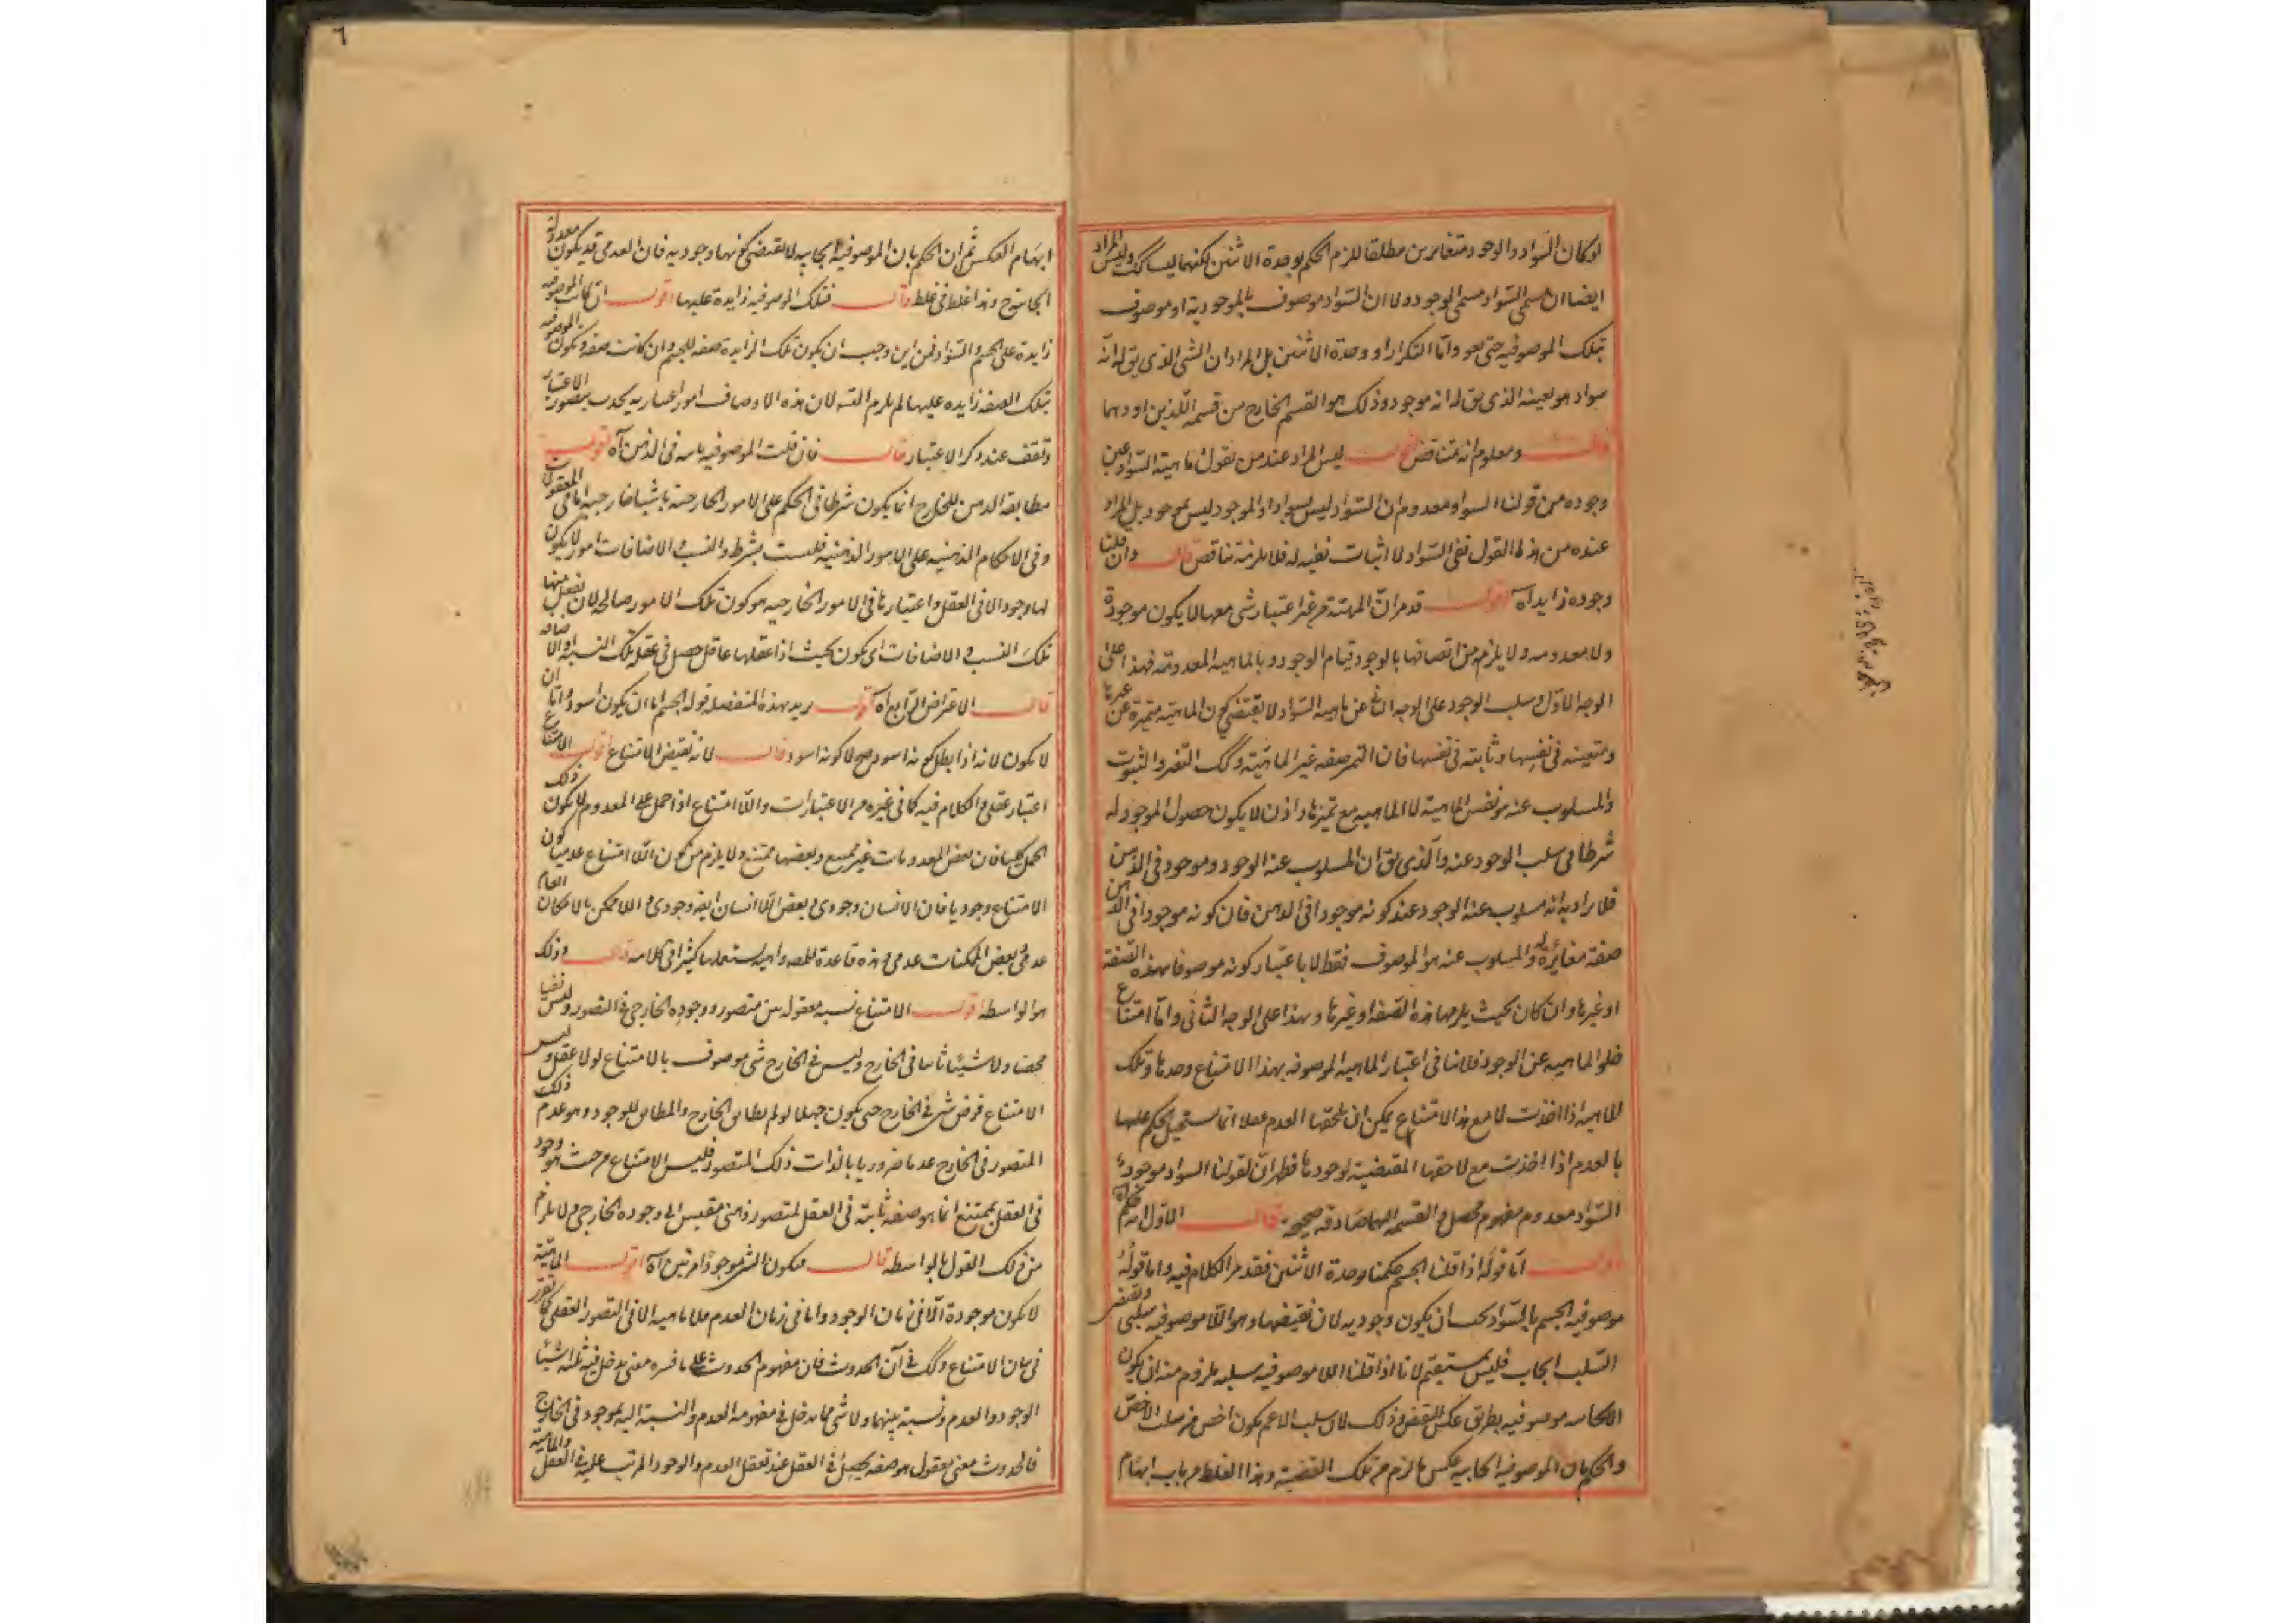 لو كان السواد والوجود متغايرين مطلقا للزم الحكم بوحدة الاثنين لكنهما ليسا كك وليس المراد
ايضا ان مسمى السواد مسمى الوجود ولا ان السواد موصوف بالموجودية او موصوف
بتلك الموصوفية حتى يعود اما التكرار او وحدة الاثنين بل المراد ان الشئ الذى يق له انه
سواد هو بعينه الذى يق له انه موجود وذلك هو القسم الخارج من قسمه اللذين اوردهما
قال ومعلوم انه متناقض اقول ليس المراد عند من يقول ماهية السواد عين
وجوده من قولنا السواد معدوم ان السواد ليس بسواد او الموجود ليس بموجود بل المراد
عنده من هذا القول نفى السواد لا اثبات نفيه له فلا يلزمه تناقض قال وان قلنا
وجوده زايد آه اقول قد مر ان المهية من غير اعتبار شى معها لا يكون موجودة
ولا معدومه ولا يلزم من اتصافها بالوجود قيام الوجود بالماهيه المعدومة فهذا على
الوجه الاول وسلب الوجود على الوجه الثانى عن ماهيه السواد لا يقتضى كون الماهية متميزة عن غيرها
ومتعينه فى نفسها وثابته فى نفسها فان التميز صفه غير الماهية وكك التعين والثبوت
والمسلوب عنه هو نفس الماهية لا الماهيه مع تميزها واذن لا يكون حصول الموجود له
شرطا فى سلب الوجود عنه والذى يق ان المسلوب عنه الوجود موجود فى الذهن
فلا يراد به انه مسلوب عنه الوجود عند كونه موجودا فى الذهن فان كونه موجودا فى الذهن
صفة مغايرة له والمسلوب عنه هو الموصوف فقط لا باعتبار كونه موصوفا بهذه الصفة
او غيرها وان كان بحيث يلزمها هذه الصفه او غيرها وهذا على الوجه الثانى واما امتناع
خلو الماهيه عن الوجود فلا ينافى اعتبار الماهية الموصوفه بهذا الامتناع وحدها وتلك
الماهية اذا اخذت لا مع هذا الامتناع يمكن ان يلحقها العدم عقلا انما يستحيل الحكم عليها
بالعدم اذا اخذت مع لاحقها المقتضية لوجودها فظهر ان لقولنا السواد موجود
السواد معدوم مفهوم محصل والقسمه اليهما صادقه صحيحة قال الاول انه حكم آه
اقول اما قوله اذا قلنا الجسم حكمنا بوحدة الاثنين فقد مر الكلام فيه واما قوله
موصوفيه الجسم بالسواد يجب ان يكون وجوديه لان نقيضها وهو اللا موصوفيه سلبى ونقيض
السلب ايجاب فليس بمستقيم لانا اذا قلنا اللا موصوفيه سلبيه يلزم منه ان يكون
الايجابيه موصوفيه بطريق عكس النقيض وذلك لان سلب الاعم يكون اخص من سلب الاخص
والحكم بان الموصوفيه ايجابيه عكس ما لزم من تلك القضية وهذا الغلط من باب ايهام
٦
ايهام العكس ثم ان الحكم بان الموصوفية ايجابيه لا يقتضى كونها وجوديه فان العدمى قد يكون معدولة
وهذا غلط فى غلط قال فتلك الموصوفيه زايدة عليها اقول ان كانت الموصوفيه
زايدة على الجسم والسواد فمن اين وجب ان يكون تلك الزايدة صفه للجسم وان كانت صفه ويكون الموصوفيه
بتلك الصفه زايده عليها لم يلزم التسه لان هذه الاوصاف امور اعتباريه يحدث بتصور الاعتبار
وتقف عند ترك الاعتبار قال فان قلت الموصوفيه ثابته فى الذهن آه اقول
مطابقة الذهن للخارج انما يكون شرطا فى الحكم على الامور الخارجية باشياء خارجيه اما فى المعقولات
وفى الاحكام الذهنيه على الامور الذهنية فليست بشرط والنسب والاضافات امور لا يكون
لها وجود الا فى العقل واعتبارها فى الامور الخارجيه هو كون تلك الامور صالحة لان يعقل منها
تلك النسب والاضافات اى يكون بحيث اذا عقلها عاقل حصل فى عقله تلك النسبه والاضافه
قال الاعتراض الرابع آه اقول يريد بهذه المنفصله قوله الجسم اما ان يكون اسود واما ان
لا يكون لانه اذا بطل كونه اسود صح لا كونه اسود قال لانه نقيض الامتناع اقول الامتناع
اعتبار عقلى والكلام فيه كما فى غيره من الاعتبارات واللا امتناع اذا حمل على المعدوم لا يكون ذلك
الحمل كليا فان بعض المعدومات غير ممتنع وبعضها ممتنع ولا يلزم من كون اللا امتناع عدميا كون
الامتناع وجوديا فان الانسان وجودى وبعض اللا انسان ايضه وجودى واللا ممكن بالامكان العام
عدمى وبعض الممكنات عدمى وهذه قاعدة للمصه واهيه يستعملها كثيرا فى كلامه قال وذلك
هو الواسطه اقول الامتناع نسبه معقوله بين متصور ووجوده الخارجى فى التصور وليس نفيا
محضا ولا شيئا ثابتا فى الخارج وليس فى الخارج شى موصوف بالامتناع لولا عقل وليس
الامتناع فرض شى فى الخارج حتى يكون جهلا لو لم يطابق الخارج والمطابق للوجود هو عدم ذلك
المتصور فى الخارج عدما ضروريا بالذات ذلك المتصور فليس الامتناع من حيث هو وجود
فى العقل بممتنع انما هو صفه ثابتة فى العقل لمتصور ذهنى مقيس الى وجوده الخارجى ولا يلزم
من ذلك القول بالواسطه قال فيكون الشى موجودا مرتين آه اقول الماهية
لا يكون موجودة الا فى زمان الوجود واما فى زمان العدم فلا ماهيه الا فى التصور العقلى كما تقرر
فى بيان الامتناع وكك فى آن الحدوث فان مفهوم الحدوث على ما فسره معنى يدخل فيه ثلثه اشياء
الوجود والعدم ونسبة بينهما ولا شى مما يدخل فى مفهومه العدم والنسبة اليه بموجود فى الخارج
فالحدوث معنى معقول هو صفه يحصل فى العقل عند تعقل العدم والوجود المرتب عليه فى العقل والماهية